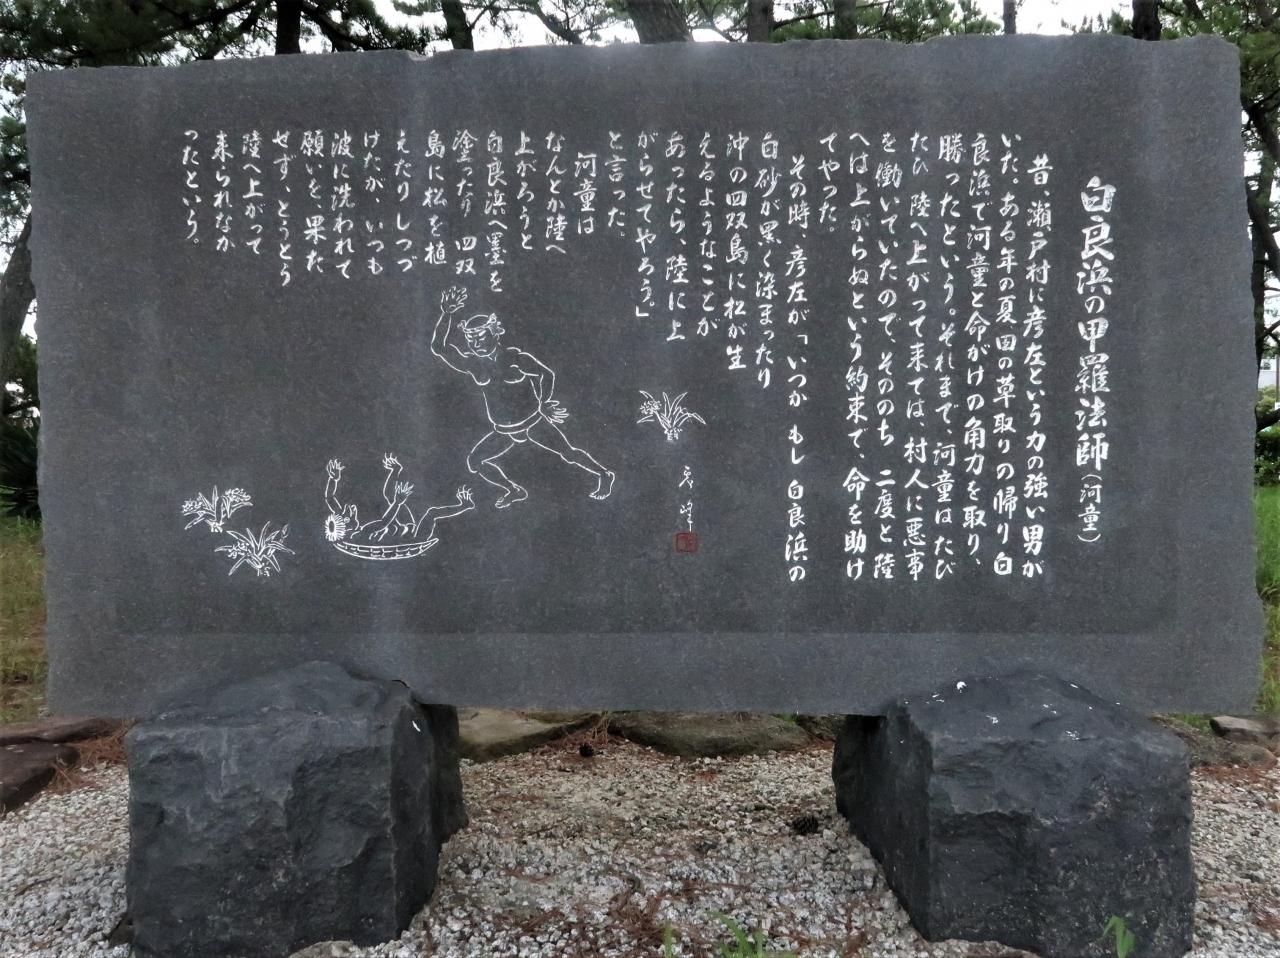 白良浜の甲羅法師(河童)
昔、瀬戸村に彦左という力の強い男が
いた。ある年の夏、田の草取りの帰り白
良浜で河童と命がけの角力を取り、
勝ったという。それまで、河童はたび
たび 陸へ上がって来ては、村人に悪事
を働いていたので、そののち 二度と陸
へは上がらぬという約束で、命を助け
てやった。
その時 彦左が「いつか もし 白良浜の
白砂が黒く染まったり
沖の四双島に松が生
えるようなことが
あったら、陸に上
がらせてやろう。」
と言った。
河童は
なんとか陸へ
上がろうと
白良浜へ墨を
塗ったり 四双
島に松を植
えたりしつづ
けたが、いつも
波に洗われて
願いを、果た
せず、とうとう
陸へ上がって
来られなか
ったという。